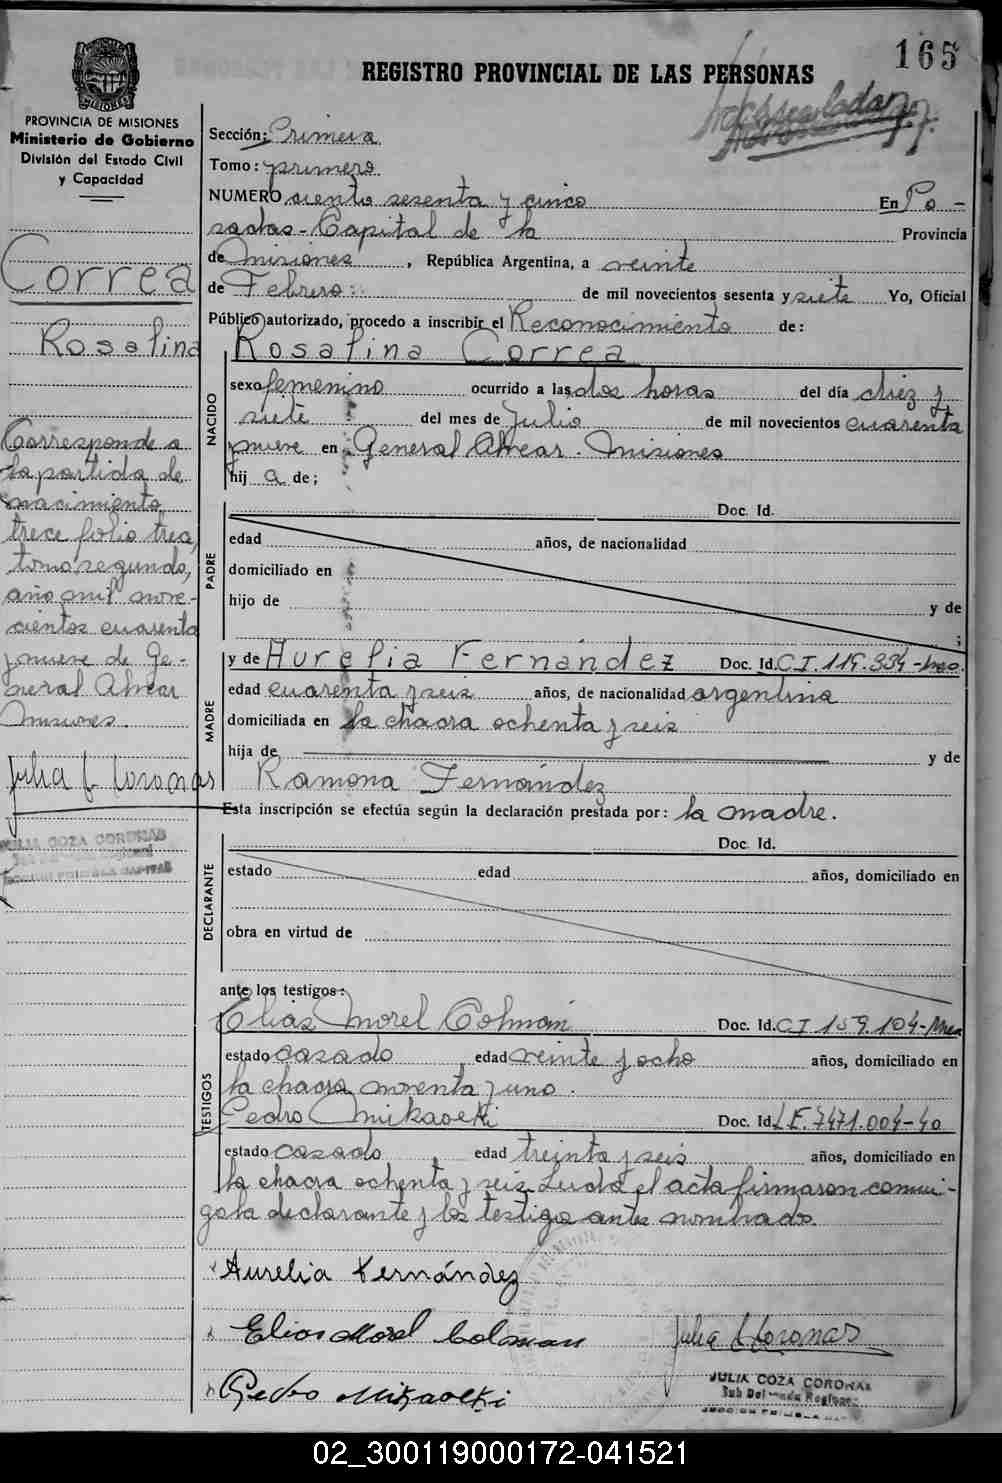 165
REGISTRO PROVINCIAL DE LAS PERSONAS
PROVINCIA DE MISIONES
Ministerio de Gobierno
División del Estado Civil
y Capacidad
Sección: Primera
Tomo: primero
NUMERO ciento sesenta y cinco En Po-
sadas - Capital de la Provincia
de Misiones, República Argentina, a veinte
de Febrero: de mil novecientos sesenta y siete Yo, Oficial
Público autorizado, procedo a inscribir el Reconocimiento de:
Correa
Rosalina
Corresponde a
la partida de
nacimiento
trece folio trece,
tomo segundo,
año mil nove-
cientos cuarenta
y nueve de Ge-
neral Alvear
Misiones.
JULIA COZA CORONAS
NACIDO
Rosalina Correa
sexo femenino ocurrido a las dos horas del día diez y
siete del mes de Julio de mil novecientos cuarenta
y nueve en General Alvear. Misiones
hij a de;
PADRE
Doc. Id.
edad años, de nacionalidad
domiciliado en
hijo de y de
;
MADRE
y de Aurelia Fernández Doc. Id. C.I. 119.334-
edad cuarenta y seis años, de nacionalidad argentina
domiciliada en la chacra ochenta y seis
hija de y de
Ramona Fernández
Esta inscripción se efectúa según la declaración prestada por: la madre.
DECLARANTE
Doc. Id.
estado edad años, domiciliado en
obra en virtud de
ante los testigos:
TESTIGOS
Elias Morel Colman Doc. Id. C.I 159.104-Mnes
estado casado edad veinte y ocho años, domiciliado en
la chacra noventa y uno.
Pedro Mikaoeki Doc. Id. L.E. 7471.004-40
estado casado edad treinta y seis años, domiciliado en
la chacra ochenta y seis. Leida el acta firmaron conmi-
go la declarante y los testigos antes nombrados.
Aurelia Fernández
Elias Morel Colman
Pedro Mikaoeki
JULIA COZA CORONAS
02_300119000172-041521